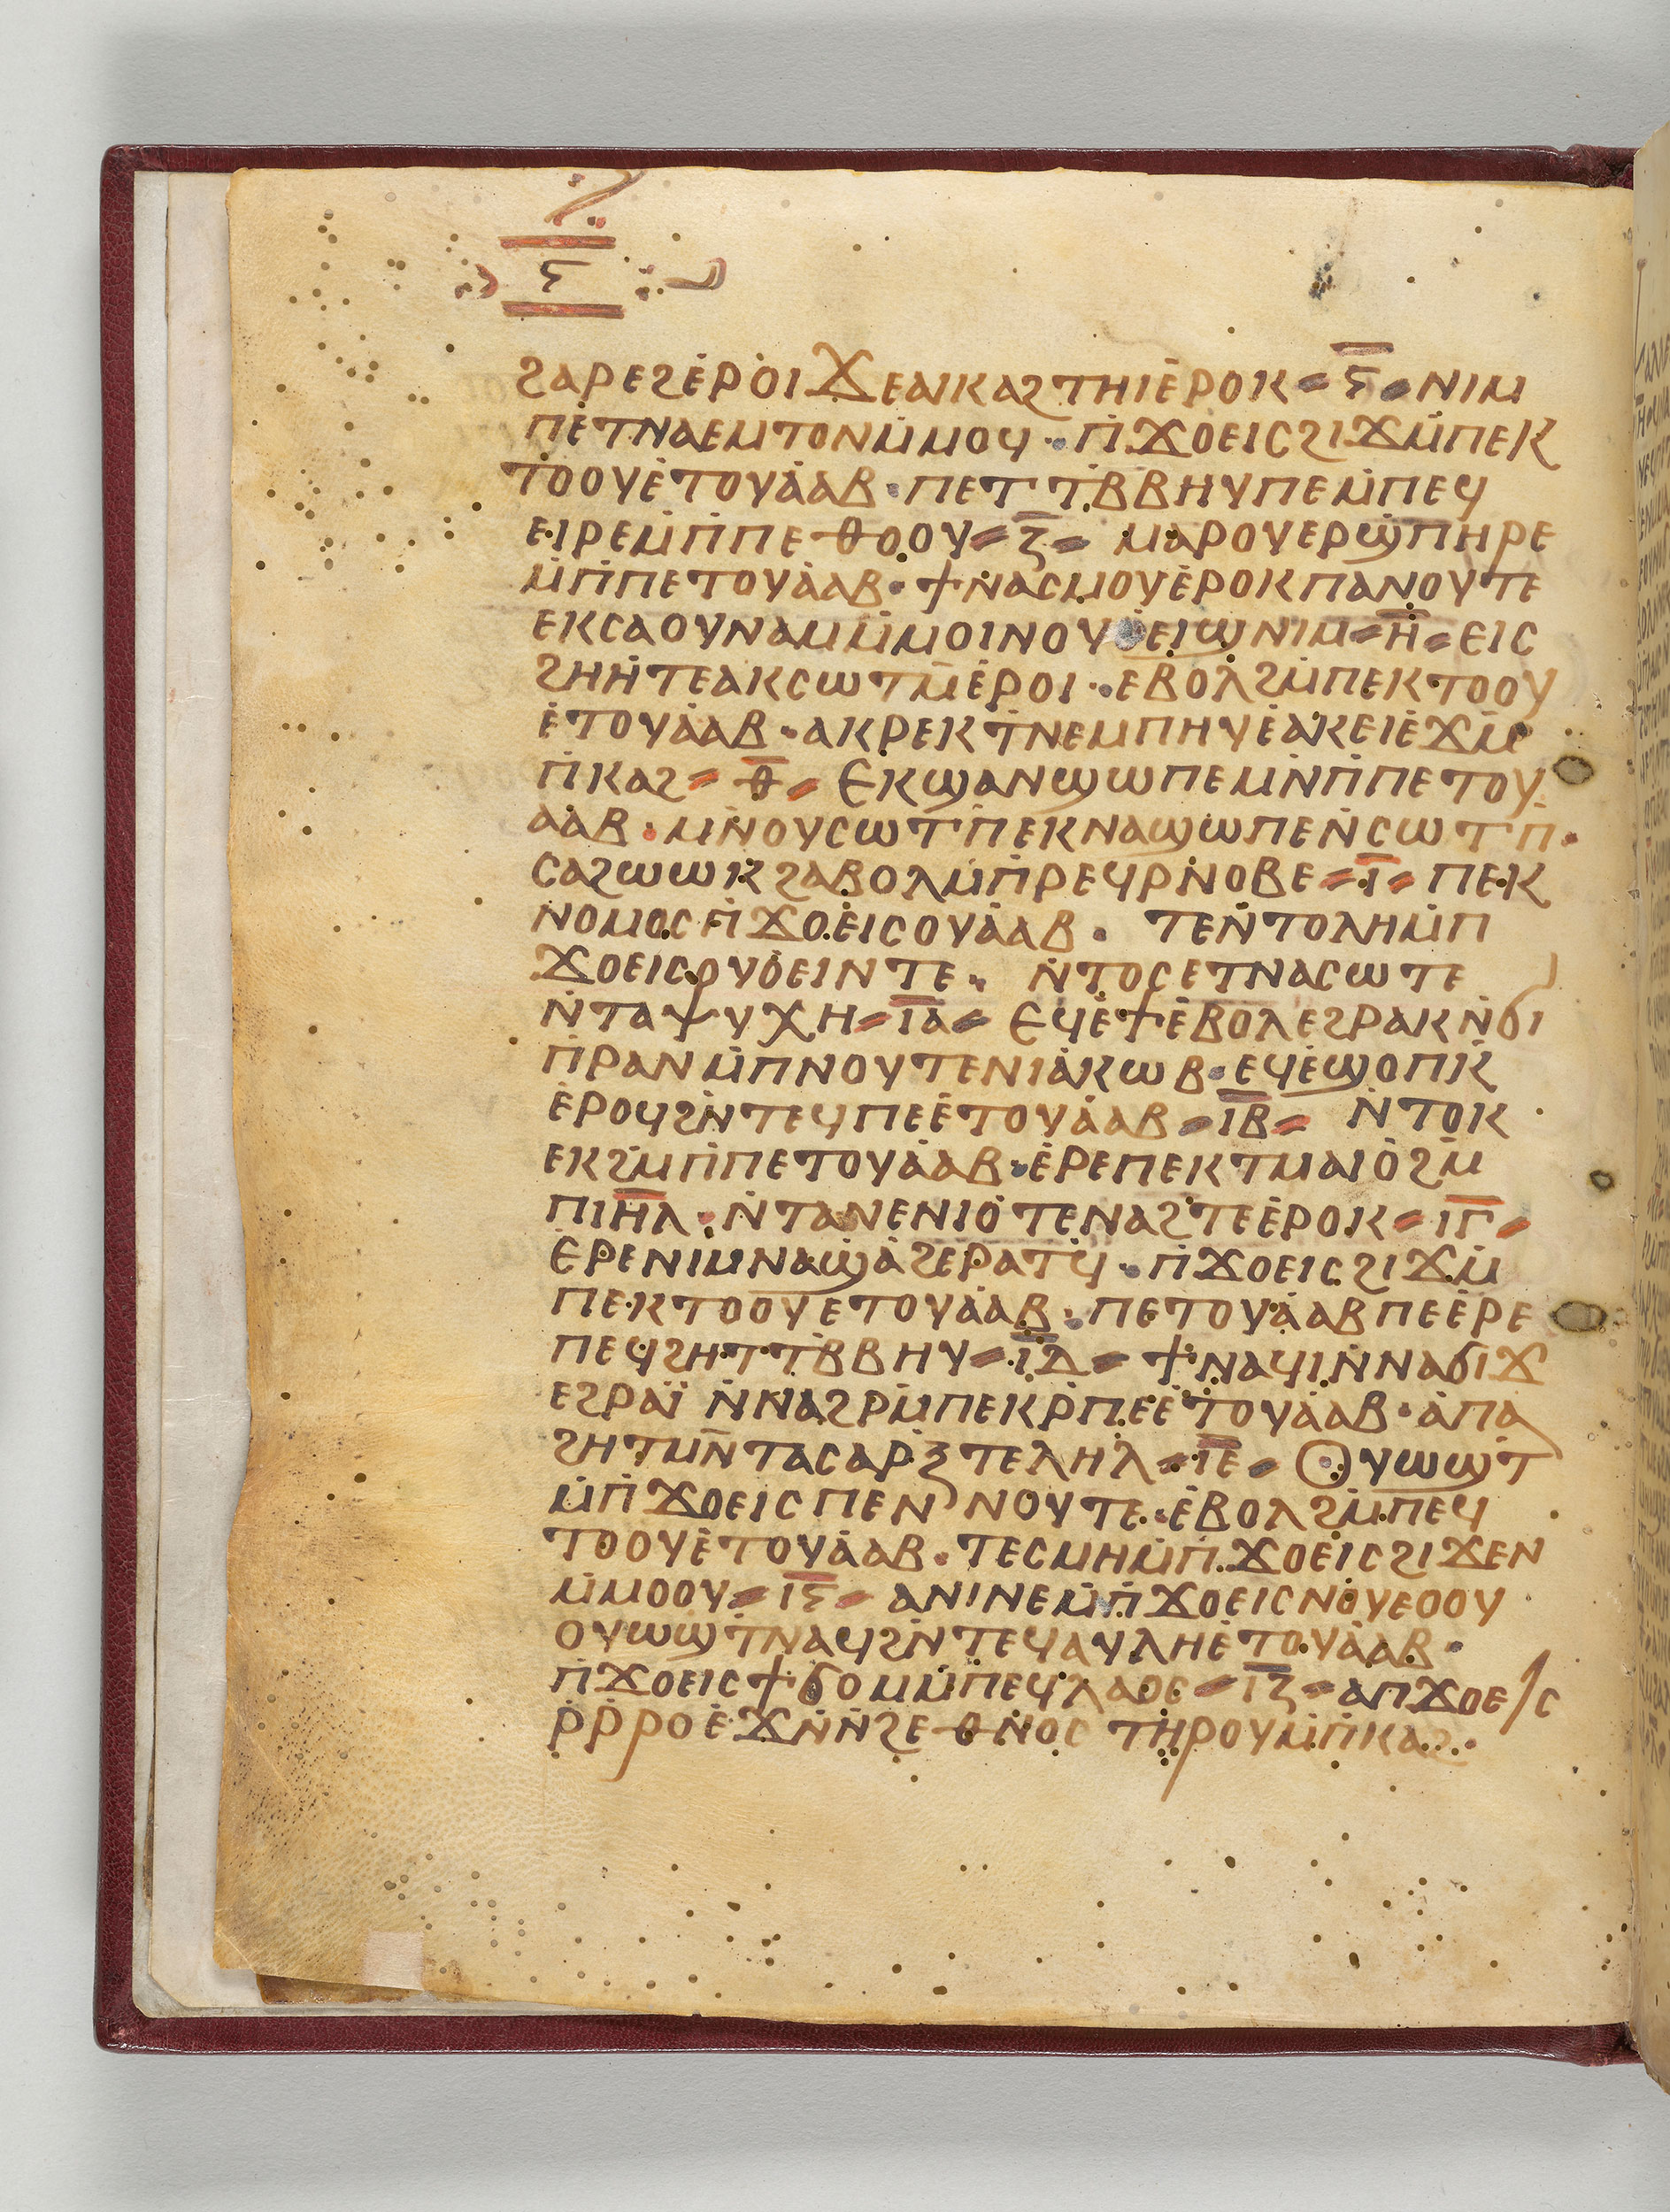 ⲋ
ϩⲁⲣⲉϩⲉ̇ⲣⲟ̇ⲓϫⲉⲁⲓⲕⲁϩⲧⲏⲓⲉ̇ⲣⲟⲕ ⲋ̅ ⲛⲓⲙ
ⲡⲉ̇ⲧⲛⲁⲉⲙⲧⲟⲛⲙ̇ⲙⲟϥ · ⲡ̇ϫⲟⲉⲓⲥϩⲓϫⲙ̇ⲡⲉⲕ
ⲧⲟⲟⲩⲉ̇ⲧⲟⲩⲁ̇ⲁⲃ · ⲡⲉⲧⲧⲃ̇ⲃⲏⲩⲡⲉⲙ̇ⲡⲉϥ
ⲉⲓⲣⲉⲙ̇ⲡ̇ⲡⲉⲑⲟⲟⲩ ⲍ̅ ⲙⲁⲣⲟⲩⲉⲣϣⲡⲏⲣⲉ
ⲙ̇ⲡ̇ⲡⲉⲧⲟⲩⲁ̇ⲁⲃ · ϯⲛⲁⲥⲙⲟⲩⲉ̇ⲣⲟⲕⲡⲁⲛⲟⲩⲧⲉ
ⲉⲕⲥⲁⲟⲩⲛⲁⲙⲙ̇ⲙⲟⲓⲛⲟⲩⲟⲉⲓϣⲛⲓⲙ ⲏ̅ ⲉⲓⲥ
ϩⲏⲏ̇ⲧⲉⲁⲕⲥⲱⲧⲙ̅ⲉ̇ⲣⲟⲓ · ⲉⲃⲟⲗϩⲙ̇ⲡⲉⲕⲧⲟⲟⲩ
ⲉ̇ⲧⲟⲩⲁ̇ⲁⲃ · ⲁⲕⲣⲉⲕⲧ̇ⲛⲉⲙⲡⲏⲩⲉ̇ⲁⲕⲉⲓⲉ̇ϫⲙ̇
ⲡ̇ⲕⲁϩ ⲑ̅ ⲉⲕϣⲁⲛϣⲱⲡⲉⲙⲛ̇ⲡ̇ⲡⲉⲧⲟⲩ
ⲁ̇ⲁⲃ · ⲙⲛ̇ⲟⲩⲥⲱⲧⲡ̇ⲉⲕⲛⲁϣⲱⲡⲉⲛ̇ⲥⲱⲧⲡ̇ ·
ⲥⲁϩⲱⲱⲕϩⲁⲃⲟⲗⲙ̇ⲡ̇ⲣⲉϥⲣⲛ̇ⲟⲃⲉ ⲓ̅ ⲡⲉⲕ
ⲛⲟⲙⲟⲥⲡ̇ϫⲟⲉ̇ⲓⲥⲟⲩⲁ̇ⲁⲃ · ⲧⲉⲛ̇ⲧⲟⲗⲏⲙ̇ⲡ
ϫⲟⲉⲓⲥⲟⲩⲟ̇ⲉⲓⲛⲧⲉ · ⲛ̇ⲧⲟⲥⲉⲧⲛⲁⲥⲱⲧⲉ
ⲛ̇ⲧⲁⲯⲩⲭⲏ ⲓ̅ⲁ̅ ⲉϥⲉ̇ϯⲉ̇ⲃⲟⲗⲉϩⲣⲁⲕⲛ̇ϭⲓ
ⲡ̇ⲣⲁⲛⲙ̇ⲡⲛⲟⲩⲧⲉⲛⲓⲁ̇ⲕⲱⲃ · ⲉϥⲉ̇ϣⲟⲡⲕ̇
ⲉ̇ⲣⲟϥϩⲛ̇ⲧⲉϥⲡⲉⲉ̇ⲧⲟⲩⲁ̇ⲁⲃ ⲓ̅ⲃ̅ ⲛ̇ⲧⲟⲕ
ⲉⲕϩⲙ̇ⲡ̇ⲡⲉⲧⲟⲩⲁ̇ⲁⲃ · ⲉ̇ⲣⲉⲡⲉⲕⲧⲙⲁⲓⲟ̇ϩⲙ̇
ⲡⲓⲏ̅ⲗ · ⲛ̇ⲧⲁⲛⲉⲛⲓⲟ̇ⲧⲉⲛⲁϩⲧⲉⲉ̇ⲣⲟⲕ ⲓ̅ⲅ̅
ⲉ̇ⲣⲉⲛⲓⲙⲛⲁϣⲁ̇ϩⲉⲣⲁⲧϥ̇ · ⲡ̇ϫⲟⲉⲓⲥϩⲓϫⲙ̇
ⲡⲉⲕⲧⲟⲟⲩⲉⲧⲟⲩⲁ̇ⲁⲃ · ⲡⲉⲧⲟⲩⲁ̇ⲁⲃⲡⲉⲉ̇ⲣⲉ
ⲡⲉϥϩⲏⲧⲧⲃ̇ⲃⲏⲩ ⲓ̅ⲇ̅ ϯⲛⲁϥⲓⲛ̇ⲛⲁϭⲓϫ
ⲉϩⲣⲁⲓ̈ ⲛ̇ⲛⲁϩⲣⲙ̇ⲡⲉⲕⲣ̇ⲡⲉⲉ̇ⲧⲟⲩⲁ̇ⲁⲃ · ⲁ̇ⲡⲁ
ϩⲏⲧⲙⲛ̅ⲧⲁⲥⲁⲣⲝⲧⲉⲗⲏⲗ ⲓ̅ⲉ̅ ⲟⲩⲱϣⲧ
ⲙ̇ⲡ̇ϫⲟⲉⲓⲥⲡⲉⲛⲛⲟⲩⲧⲉ · ⲉ̇ⲃⲟⲗϩⲙ̇ⲡⲉϥ
ⲧⲟⲟⲩⲉ̇ⲧⲟⲩⲁ̇ⲁⲃ · ⲧⲉⲥⲙⲏⲙ̇ⲡ̇ϫⲟⲉⲓⲥϩⲓϫⲉⲛ
ⲙ̇ⲙⲟⲟⲩ ⲓ̅ⲋ̅ ⲁⲛⲓⲛⲉⲙ̇ⲡ̇ϫⲟⲉⲓⲥⲛⲟ̇ⲩⲉⲟⲟⲩ
ⲟⲩⲱϣⲧ̇ⲛⲁϥϩⲛ̇ⲧⲉϥⲁⲩⲗⲏⲉ̇ⲧⲟⲩⲁ̇ⲁⲃ ·
ⲡ̇ϫⲟⲉⲓⲥϯϭⲟⲙⲙ̇ⲡⲉϥⲗⲁⲟⲥ ⲓ̅ⲍ̅ ⲁⲡϫⲟⲉⲓⲥ
ⲣ̇ⲣ̇ⲣⲟⲉ̇ϫⲛ̇ⲛ̇ϩⲉⲑⲛⲟⲥⲧⲏⲣⲟⲩⲙ̇ⲡ̇ⲕⲁϩ ·